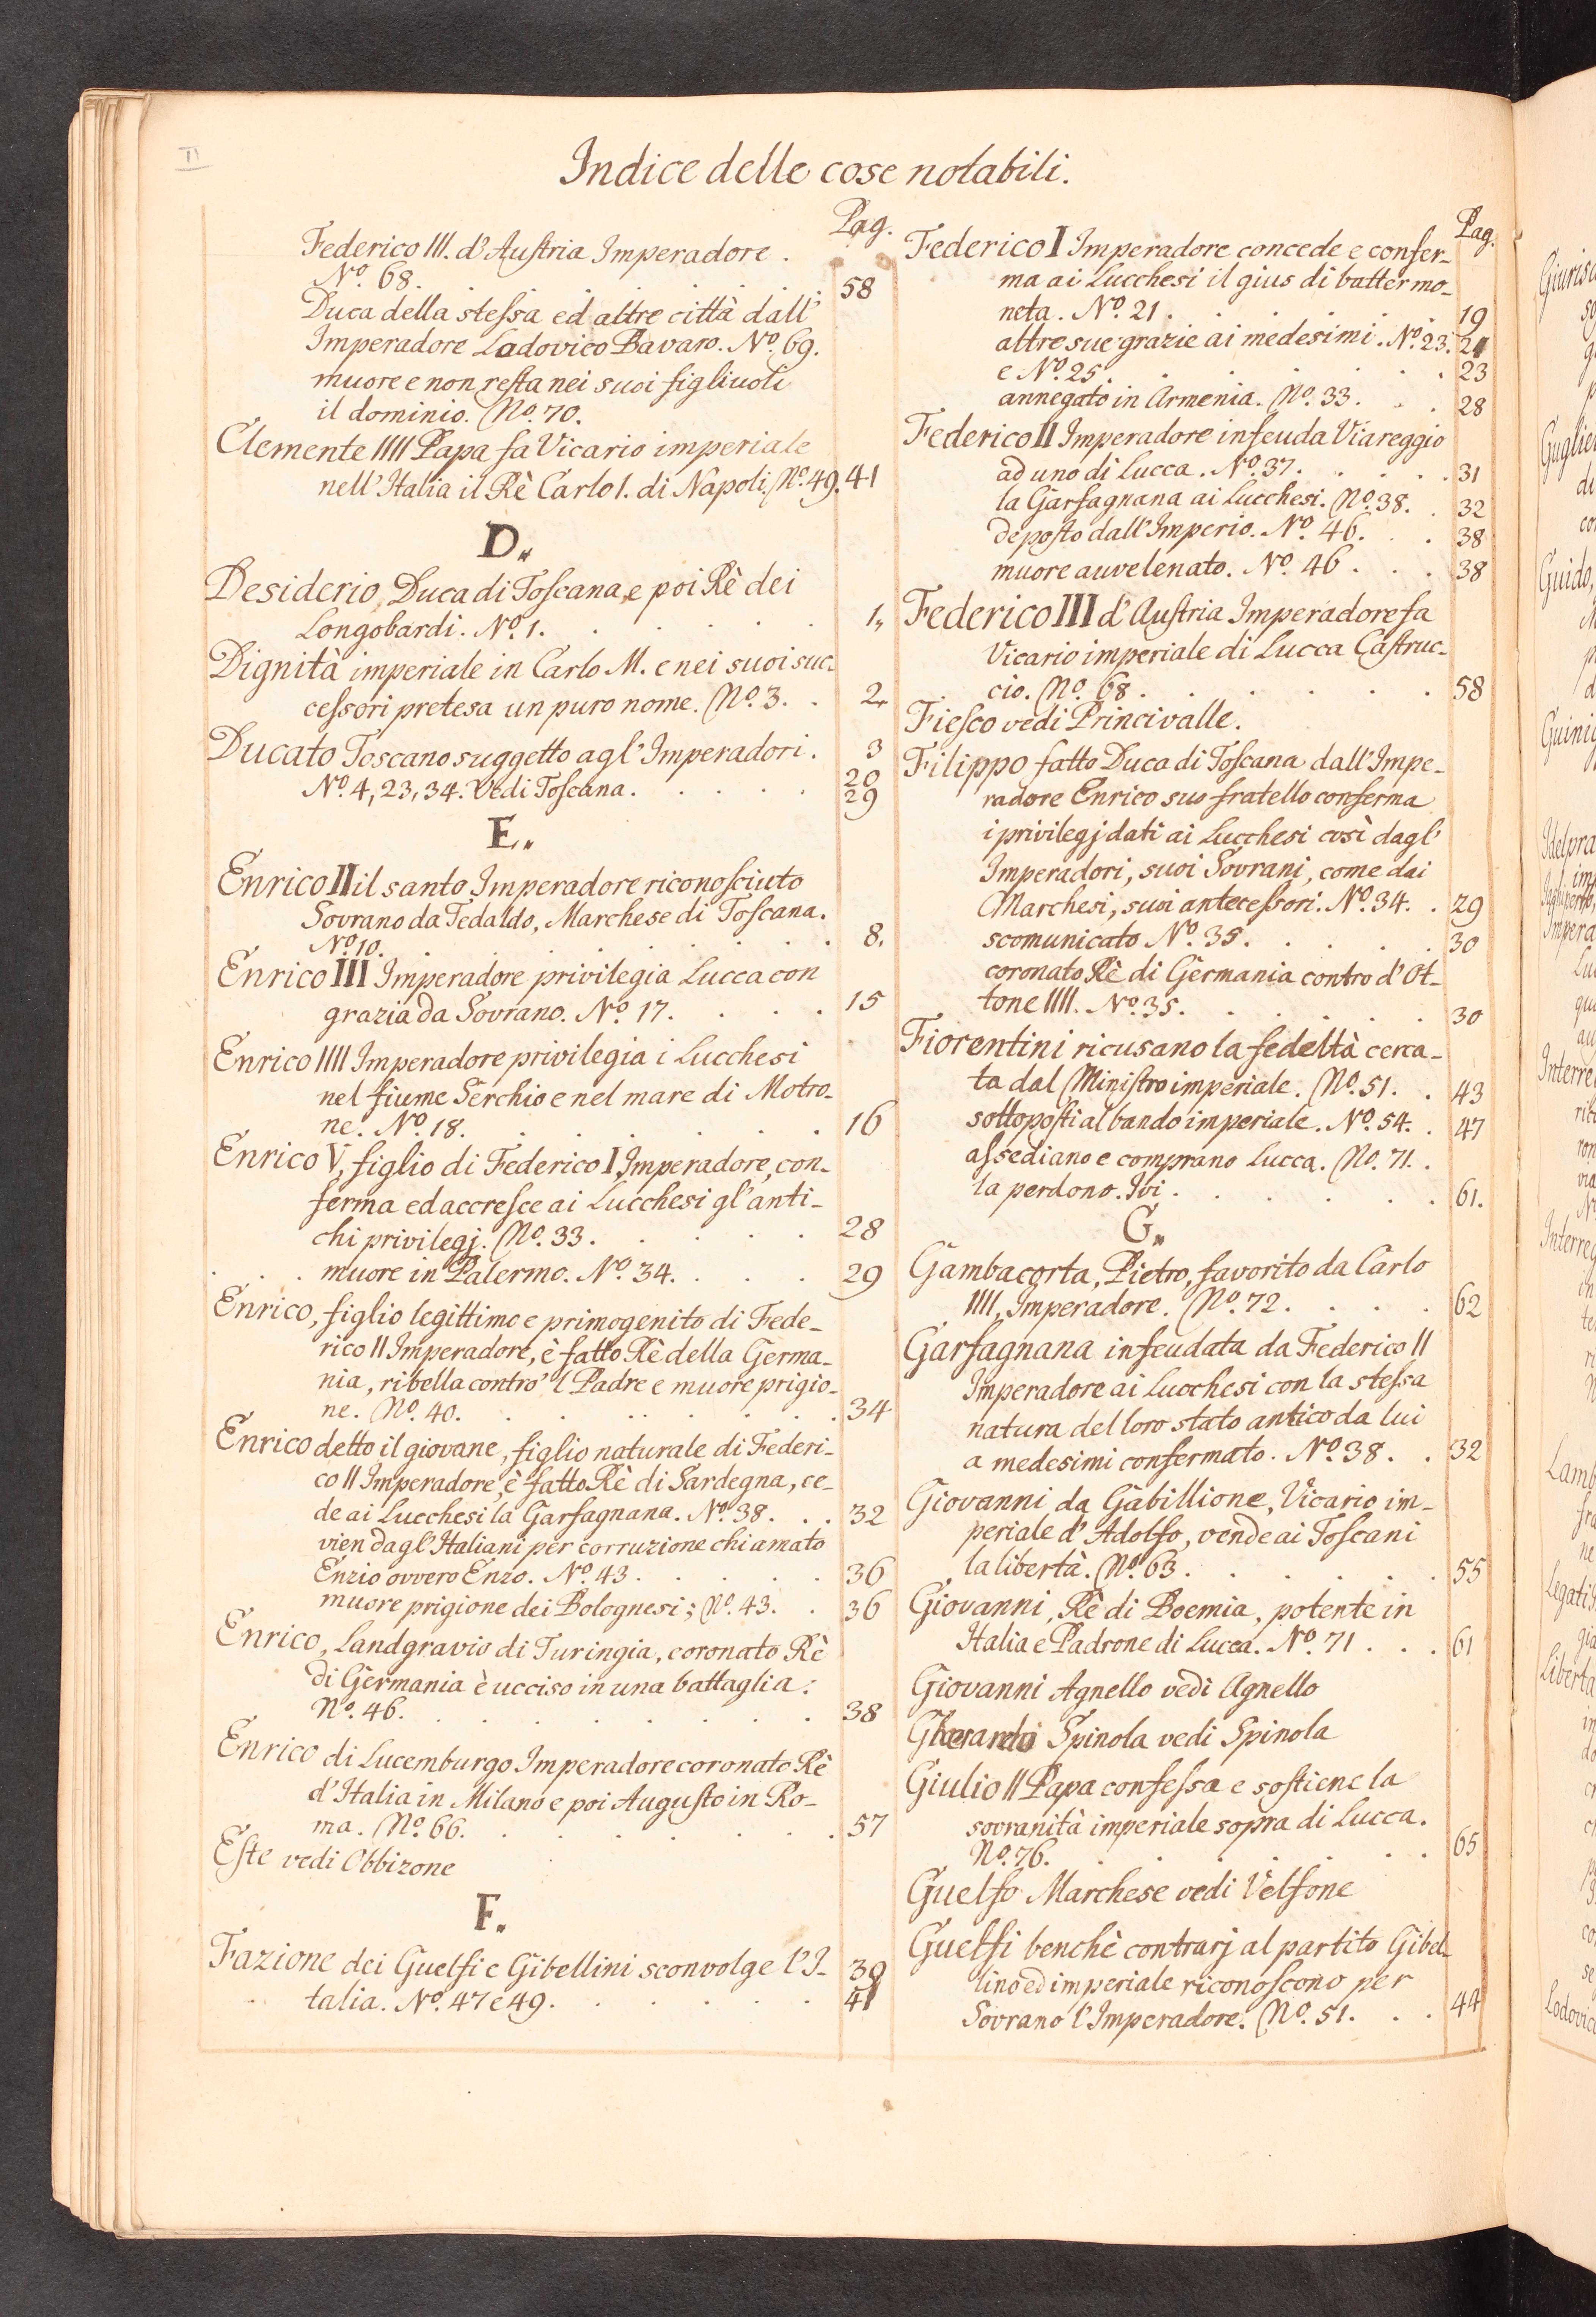 II
Indice delle cose notabili.
Pag.
Federico III. d'Austria Imperadore.
Nº. 68. . . . . . . . 58
Duca della stessa ed altre città dall'
Imperadore Lodovico Bavaro. Nº. 69.
muore e non resta nei suoi figliuoli
il dominio. Nº. 70.
Clemente IIII Papa fa Vicario imperiale
nell'Italia il Rè Carlo I. di Napoli. Nº. 49. 41
D.
Desiderio, Duca di Toscana, e poi Rè dei
Longobardi. Nº. 1. . . . . . 1.
Dignità imperiale in Carlo M. e nei suoi suc-
cessori pretesa un puro nome. Nº. 3. . 2.
Ducato Toscano suggetto agl'Imperadori. 3
Nº. 4, 23, 34. Vedi Toscana. . . . . 20
29
E.
Enrico II il santo Imperadore riconosciuto
Sovrano da Tedaldo, Marchese di Toscana.
Nº. 10. . . . . . . . 8.
Enrico III Imperadore privilegia Lucca con
grazia da Sovrano. Nº. 17. . . . 15
Enrico IIII Imperadore privilegia i Lucchesi
nel fiume Serchio e nel mare di Motro-
ne. Nº. 18. . . . . . . 16
Enrico V, figlio di Federico I, Imperadore, con-
ferma ed accresce ai Lucchesi gl'anti-
chi privilegj. Nº. 33. . . . . . 28
. . . muore in Palermo. Nº. 34. . . . . 29
Enrico, figlio legittimo e primogenito di Fede-
rico II Imperadore, è fatto Rè della Germa-
nia, ribella contro 'l Padre e muore prigio-
ne. Nº. 40. . . . . . . . 34
Enrico detto il giovane, figlio naturale di Federi-
co II Imperadore, è fatto Rè di Sardegna, ce-
de ai Lucchesi la Garfagnana. Nº. 38. . . 32
vien dagl'Italiani per corruzione chiamato
Enzio ovvero Enzo. Nº. 43. . . . . 36
muore prigione dei Bolognesi; Nº. 43. . 36
Enrico, Landgravio di Turingia, coronato Rè
di Germania è ucciso in una battaglia:
Nº. 46. . . . . . . . . 38
Enrico di Lucemburgo Imperadore coronato Rè
d'Italia in Milano e poi Augusto in Ro-
ma. Nº. 66. . . . . . . . 57
Este vedi Obbizone
F.
Fazione dei Guelfi e Gibellini sconvolge l'I- 39
talia. Nº. 47 e 49. . . . . . . 41
Pag.
Federico I Imperadore concede e confer-
ma ai Lucchesi il gius di batter mo-
neta. Nº. 21. . . . . . 19
altre sue grazie ai medesimi. Nº. 23. 21
e Nº. 25. . . . . . . . 23
annegato in Armenia. Nº. 33. . . 28
Federico II Imperadore infeuda Viareggio
ad uno di Lucca. Nº. 37. . . . . 31
la Garfagnana ai Lucchesi. Nº. 38. . 32
deposto dall'Imperio. Nº. 46. . . 38
muore auvelenato. Nº. 46. . . . 38
Federico III d'Austria Imperadore fa
Vicario imperiale di Lucca Castruc-
cio. Nº. 68. . . . . . . 58
Fiesco vedi Princivalle.
Filippo fatto Duca di Toscana dall'Impe-
radore Enrico suo fratello conferma
i privilegj dati ai Lucchesi così dagl'
Imperadori, suoi Sovrani, come dai
Marchesi, suoi antecessori. Nº. 34. . 29
scomunicato Nº. 35. . . . . . 30
coronato Rè di Germania contro d'Ot-
tone IIII. Nº. 35. . . . . . . 30
Fiorentini ricusano la fedeltà cerca-
ta dal Ministro imperiale. Nº. 51. . 43
sottoposti al bando imperiale. Nº. 54. . 47
assediano e comprano Lucca. Nº. 71. .
la perdono. Ivi. . . . . . . 61.
G.
Gambacorta, Pietro, favorito da Carlo
IIII, Imperadore. Nº. 72. . . . . 62
Garfagnana infeudata da Federico II
Imperadore ai Lucchesi con la stessa
natura del loro stato antico da lui
a medesimi confermato. Nº. 38. . 32
Giovanni da Gabillione, Vicario im-
periale d'Adolfo, vende ai Toscani
la libertà. Nº. 63. . . . . . . 55
Giovanni, Rè di Boemia, potente in
Italia e Padrone di Lucca. Nº. 71. . . 61
Giovanni Agnello vedi Agnello
Spinola vedi Spinola
Giulio II Papa confessa e sostiene la
sovranità imperiale sopra di Lucca.
Nº. 76. . . . . . . . 65
Guelfo Marchese vedi Velfone
Guelfi benchè contrarj al partito Gibel-
lino ed imperiale riconoscono per
Sovrano l'Imperadore. Nº. 51. . . 44